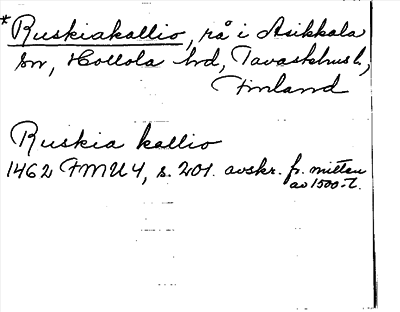 *Ruskiakallio, rå i Asikkala
sn, Hollola hd, Tavastehus l.,
Finland
Ruskia kallio
1462 FMU 4, s. 201. avskr. fr. mitten
av 1500-t.